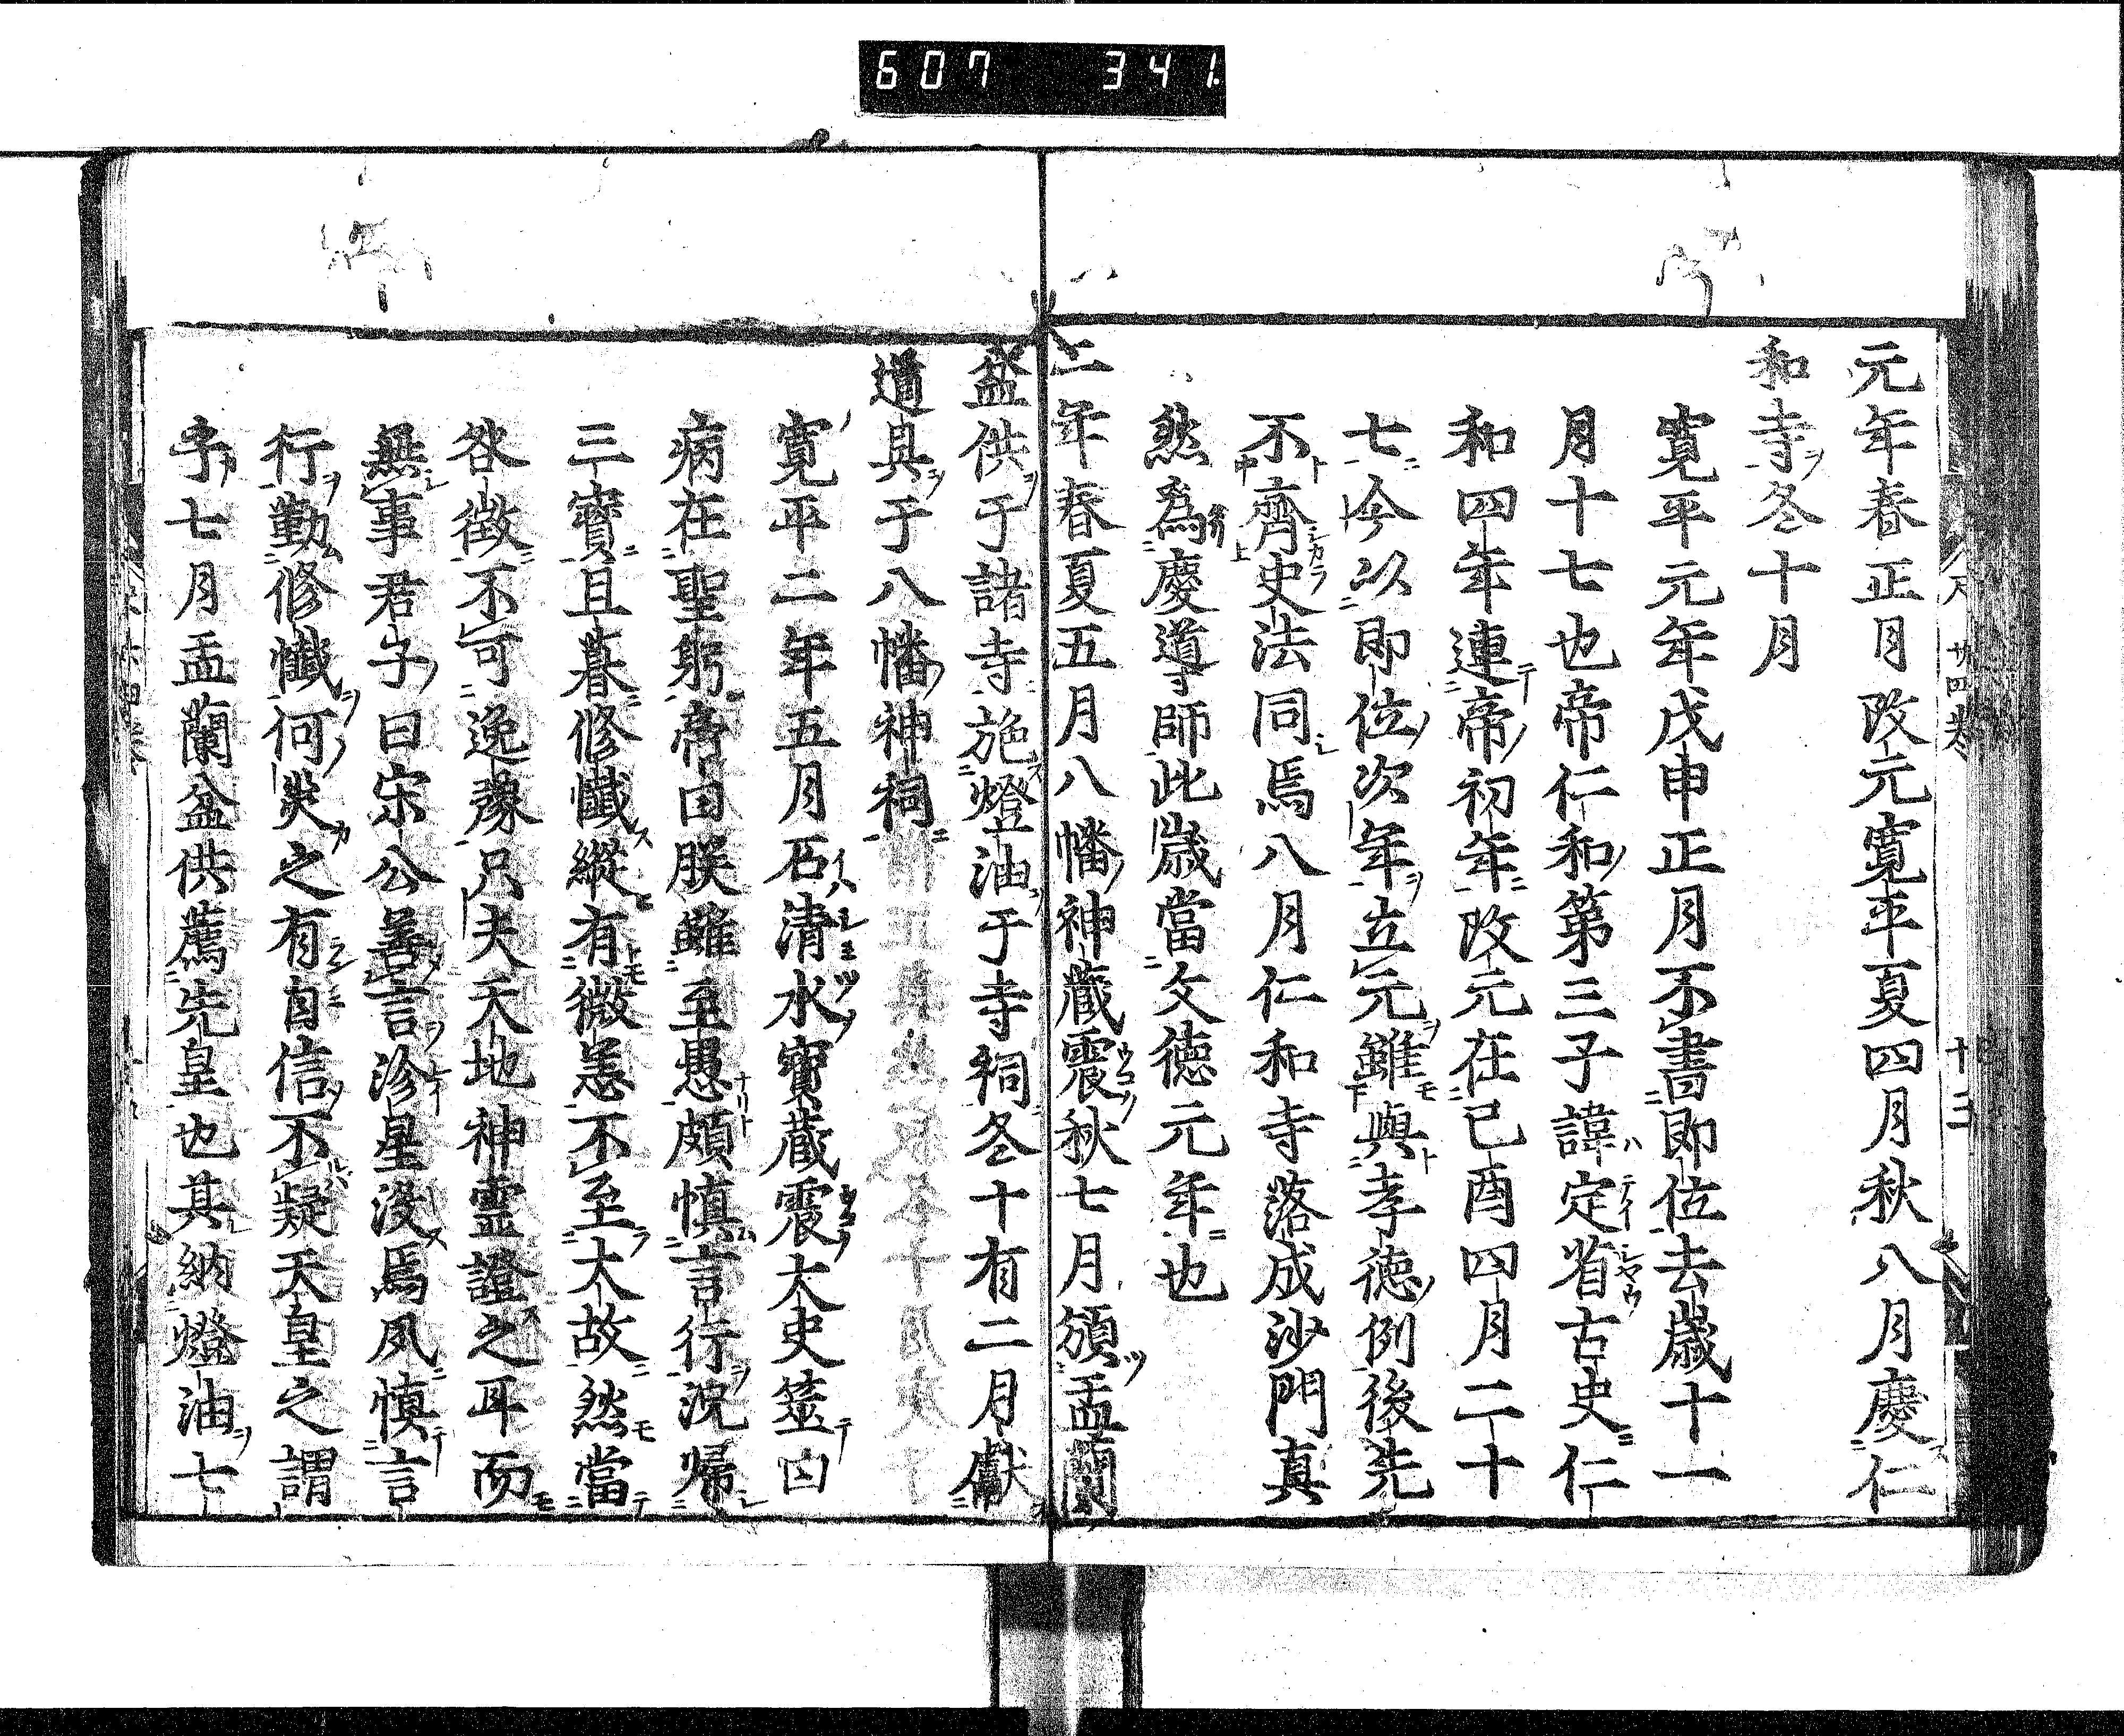 607 341
元年春正月改元寛平夏四月秋八月慶仁
和寺冬十月
寛平元年戊申正月不書即位去歳十一
月十七也帝仁和第三子諱定省古史仁
和四年連帝初年改元在己酉四月二十
七今以即位次年立元雖與孝徳例後先
不齊史法同焉八月仁和寺落成沙門真
然爲慶導師此歳當文徳元年也
二年春夏五月八幡神藏震秋七月頒盂蘭
盆供于諸寺施燈油于寺祠冬十有二月獻
道具于八幡神祠
寛平二年五月石清水寶藏震太史筮曰
病在聖躬帝曰朕雖至愚頗慎言行況歸
三寶且暮修懺縱有微恙不至大故然當
咎徴不可逸豫只夫天地神靈證之耳而
無事君子曰宋公善言沴星沒焉夙慎言
行勤修懺何災之有自信不疑天皇之謂
乎七月盂蘭盆供薦先皇也其納燈油七